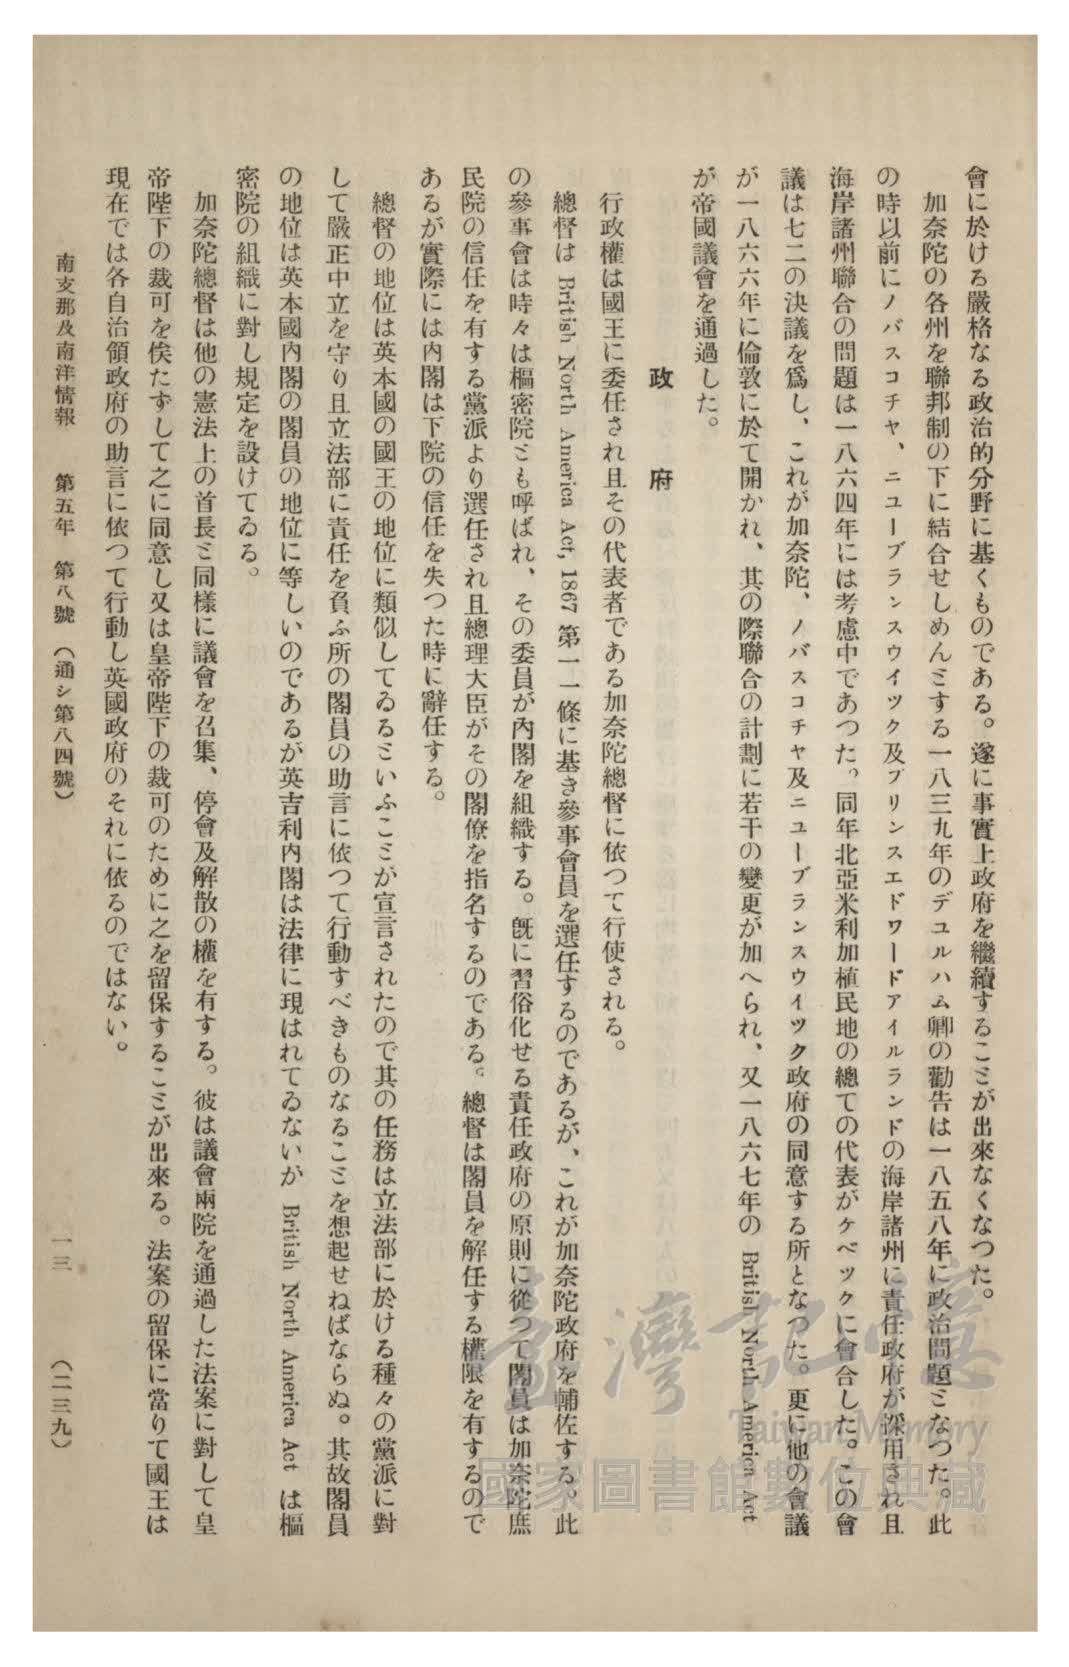 會に於ける嚴格なる政治的分野に基くものである。遂に事實上政府を繼續することが出來なくなつた。
加奈陀の各州を聯邦制の下に結合せしめんとする一八三九年のデユルハム卿の勸告は一八五八年に政治問題となつた。此
の時以前にノバスコチヤ、ニユーブランスウイツク及プリンスエドワードアイルランドの海岸諸州に責任政府が採用され且
海岸諸州聯合の問題は一八六四年には考慮中であつた。同年北亞米利加植民地の總ての代表がケベツクに會合した。この會
議は七二の決議を爲し、これが加奈陀、ノバスコチヤ及ニユーブランスウイツク政府の同意する所となつた。更に他の會議
が一八六六年に倫敦に於て開かれ、其の際聯合の計劃に若干の變更が加へられ、又一八六七年の British North America Act
が帝國議會を通過した。
政府
行政權は國王に委任され且その代表者である加奈陀總督に依つて行使される。
總督は British North America Act, 1867 第一一條に基き參事會員を選任するのであるが、これが加奈陀政府を輔佐する。此
の參事會は時々は樞密院とも呼ばれ、その委員が內閣を組織する。旣に習俗化せる責任政府の原則に從つて閣員は加奈陀庶
民院の信任を有する黨派より選任され且總理大臣がその閣僚を指名するのである。總督は閣員を解任する權限を有するので
あるが實際には內閣は下院の信任を失つた時に辭任する。
總督の地位は英本國の國王の地位に類似してゐるといふことが宣言されたので其の任務は立法部に於ける種々の黨派に對
して嚴正中立を守り且立法部に責任を負ふ所の閣員の助言に依つて行動すべきものなることを想起せねばならぬ。其故閣員
の地位は英本國內閣の閣員の地位に等しいのであるが英吉利內閣は法律に現はれてゐないが British North America Act は樞
密院の組織に對し規定を設けてゐる。
加奈陀總督は他の憲法上の首長と同樣に議會を召集、停會及解散の權を有する。彼は議會兩院を通過した法案に對して皇
帝陛下の裁可を俟たずして之に同意し又は皇帝陛下の裁可のために之を留保することが出來る。法案の留保に當りて國王は
現在では各自治領政府の助言に依つて行動し英國政府のそれに依るのではない。
南支那及南洋情報 第五年 第八號 (通シ第八四號) 一三 (二三九)
臺灣記憶
Taiwan Memory
國家圖書館數位典藏